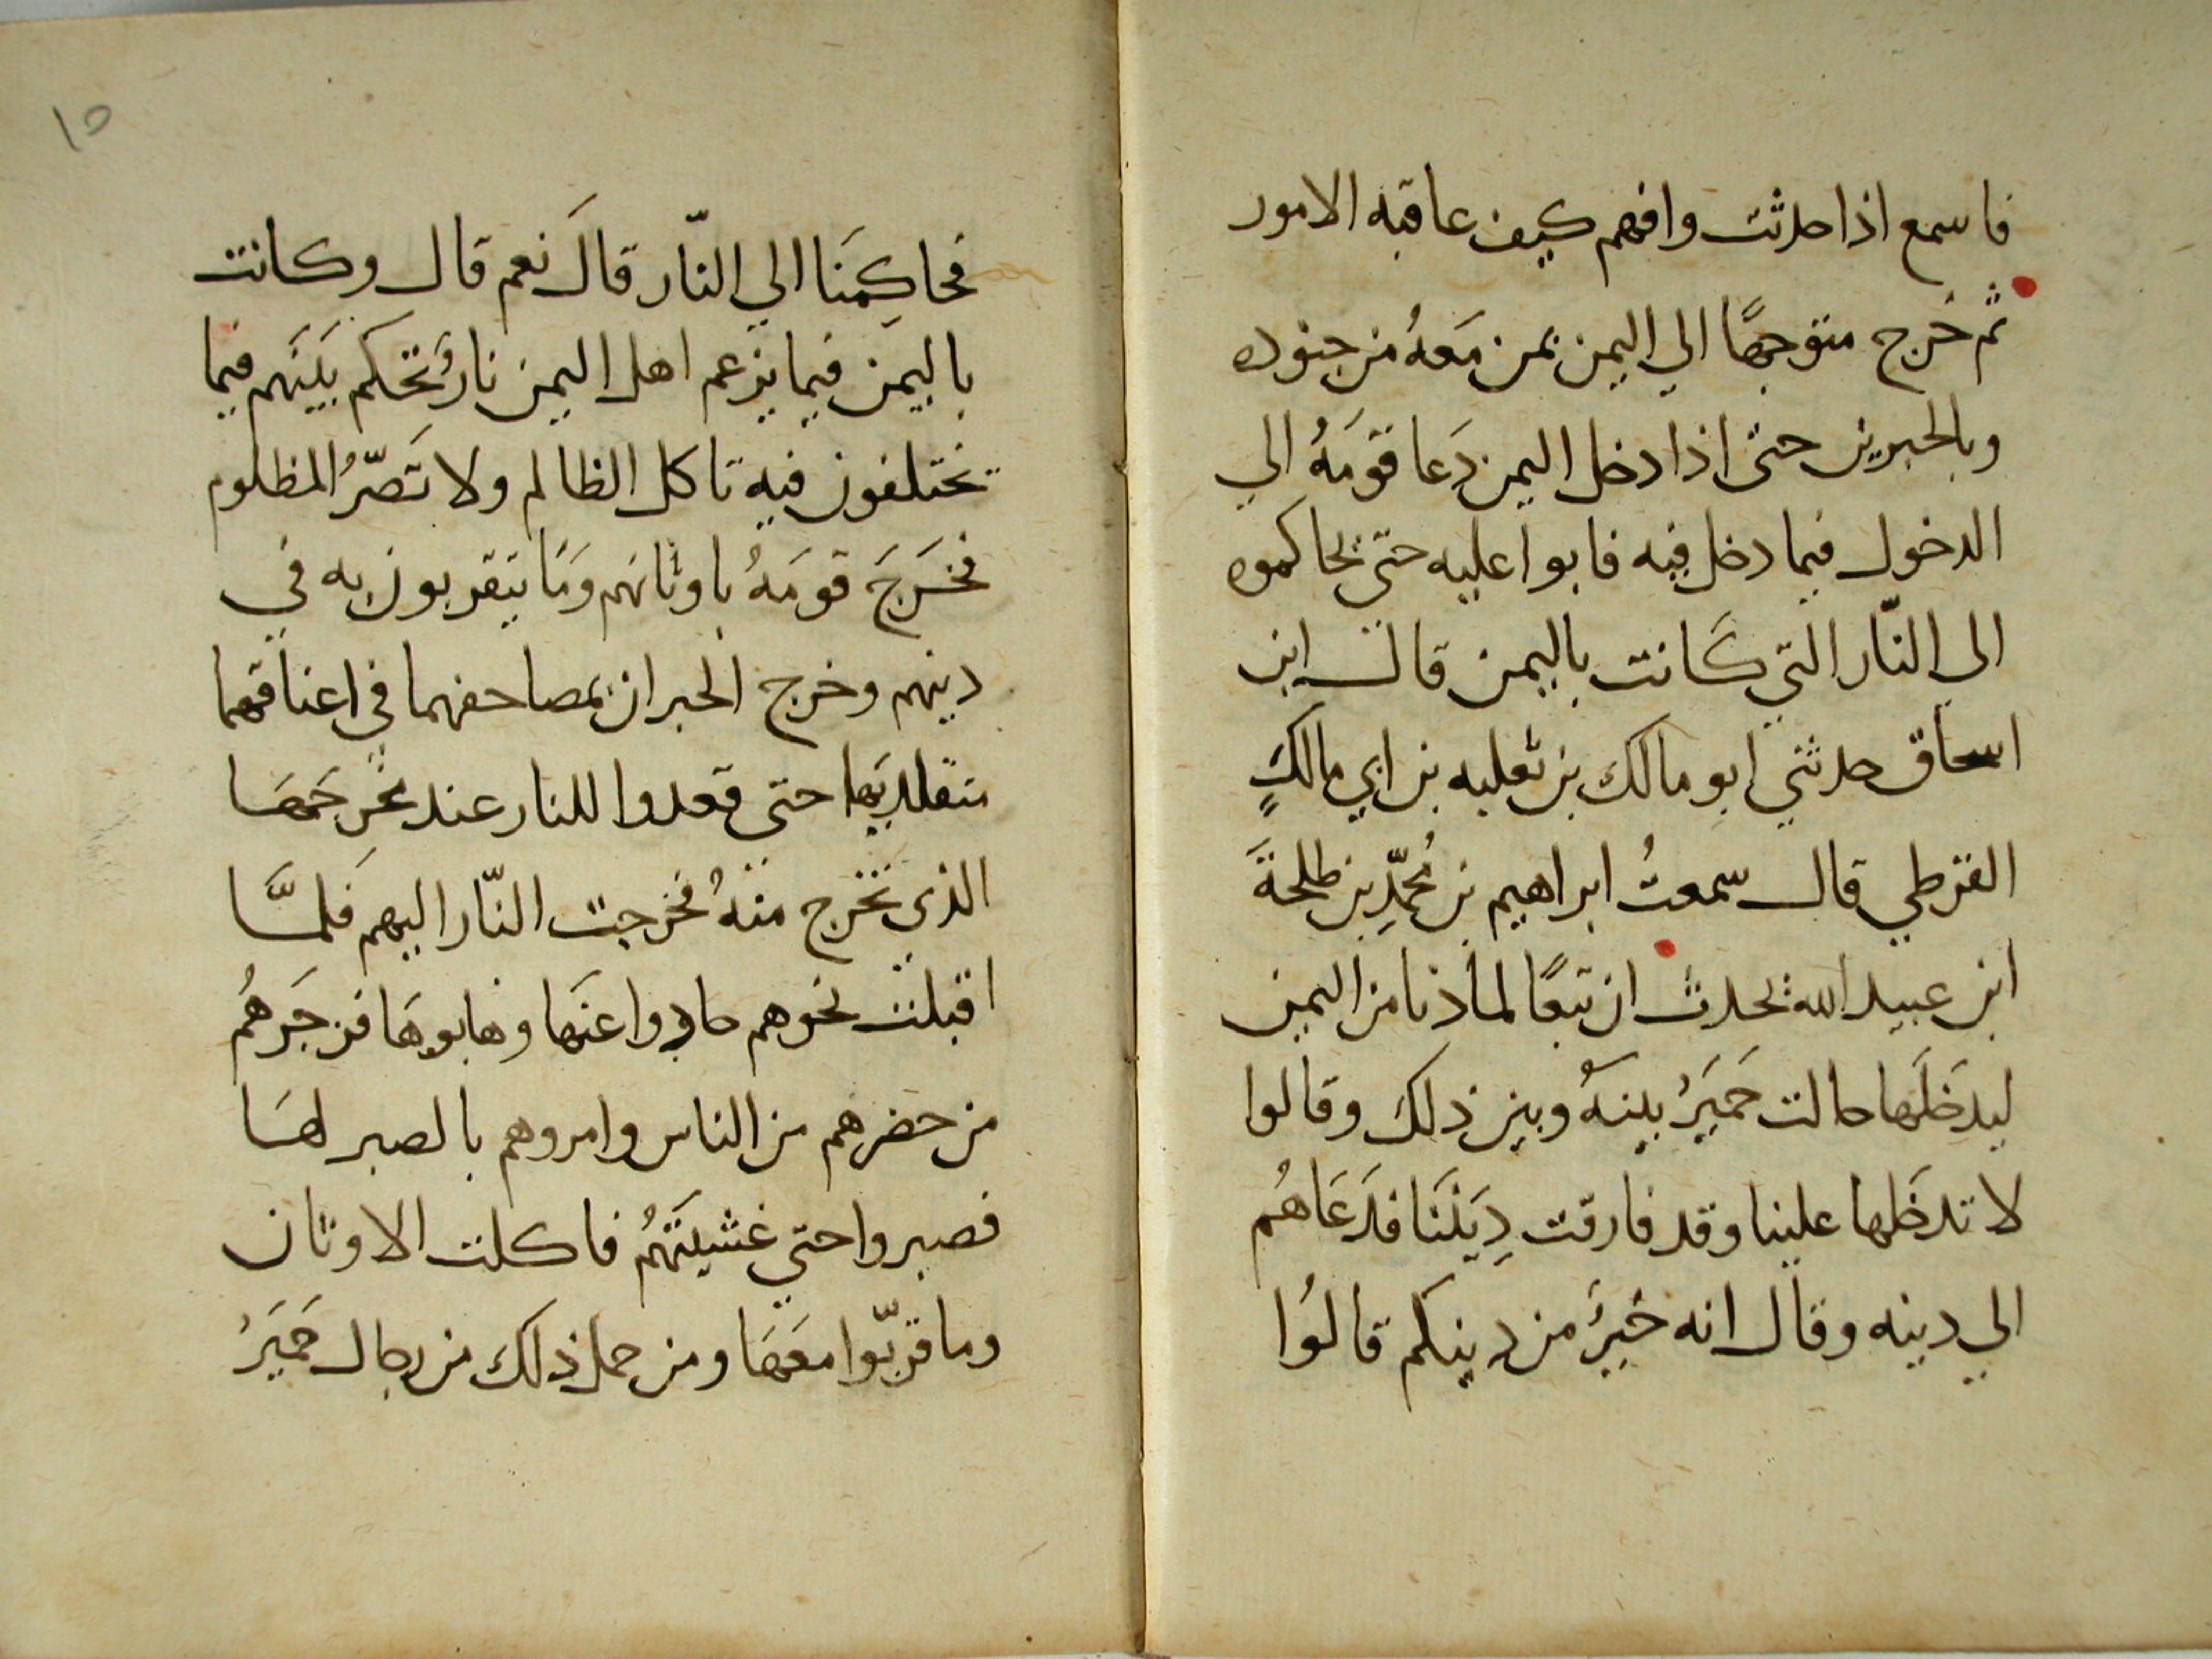 فاسمع اذا حدثت وافهم كيف عاقبه الامور
ثم خرج متوجهًا الي اليمن بمن مَعهُ من جنوده
وبالحبرين حتى اذا دخل اليمن دَعا قومَهُ الي
الدخول فيما دخل فيه فابوا عليه حتّي يحاكموه
الي النّار التي كَانت باليمن قال ابن
اسحاق حدثني ابو مالك بن ثعلبه بن ابي مالكٍ
القرظي قال سمعتُ ابراهيم بن مُحمّدِ بن طلحةَ
ابن عبيد الله يحدث ان تبعًا لما دنا من اليمن
ليدخَلَها حالت حَميَرُ بينهُ وبين ذلك وقالوا
لا تدخَلها علينا وقد فارقت دِيَننَا فدَعَاهُم
الي دينه وقال انه خَيرٌ من دينكم قالُوا
١٥
فحاكِمنَا الي النّار قالَ نعم قال وكانت
باليمَن فيما يزعم اهل اليمن نارٌ تحكم بَينَهم فيما
يختلفون فيه تاكل الظالم ولا تَضّرُ المظلوم
فخَرجَ قومَهُ باوثانهم وَمَا يتقربون به في
دينهم وخرج الحبران بمصاحفهما في اعناقهما
متقلديَها حتى قعدوا للنار عند مخَرجَهَا
الذي تخرج منهُ فخرجت النّار اليهم فَلمَّا
اقبلت نحوهم حادوا عنَها وهابوهَا فزجَرهُم
من حضرهم من الناس وامروهم بالصبر لهَا
فصبروا حتي غشيَتهُم فاكلت الاوثان
وما قربّوا معَهَا ومن حمل ذلك من رجال حَميَرُ